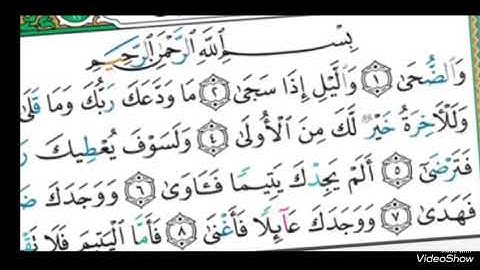 بِسْمِ اللَّهِ الرَّحْمَٰنِ الرَّحِيمِ
وَالضُّحَىٰ ١ وَاللَّيْلِ إِذَا سَجَىٰ ٢ مَا وَدَّعَكَ رَبُّكَ وَمَا قَلَىٰ
وَلَلْآخِرَةُ خَيْرٌ لَّكَ مِنَ الْأُولَىٰ ٤ وَلَسَوْفَ يُعْطِيكَ
فَتَرْضَىٰ ٥ أَلَمْ يَجِدْكَ يَتِيمًا فَـَٔاوَىٰ ٦ وَوَجَدَكَ
فَهَدَىٰ ٧ وَوَجَدَكَ عَآئِلًا فَأَغْنَىٰ ٨ فَأَمَّا الْيَتِيمَ فَلَا
VideoShow